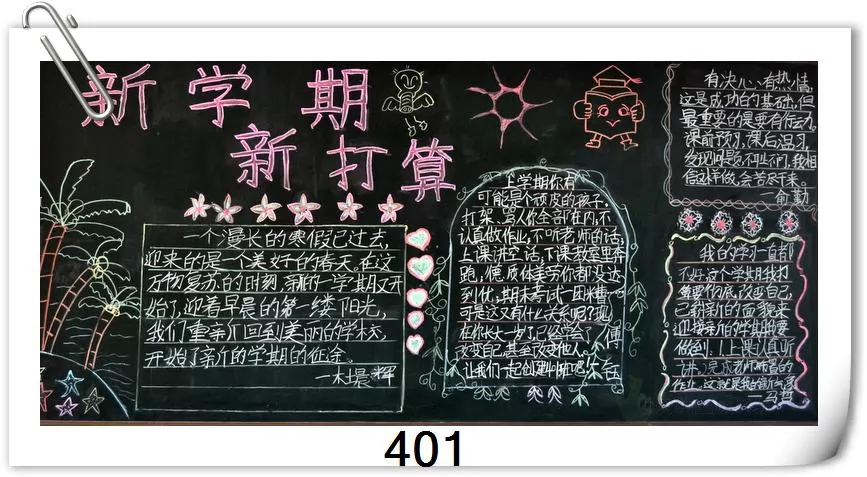 新学期
新打算
一个漫长的寒假已过去,
迎来的是一个美好的春天。在这
万物复苏的时刻,新的一学期又开
始了,迎着早晨的第一缕阳光,
我们重新回到美丽的学校,
开始了新的学期的征途。
上学期你有
可能是个顽皮的孩子,
打架、骂人你全部在内,不
认真做作业,不听老师的话,
上课讲空话,下课教室里奔
跑,德质体美劳你都没达
到优,期末考试一团糟
可是这又有什么关系呢?现
在你长大一岁了已经学会了
改变自己,甚至改变他人。
让我们一起创理
有决心、有热情,
这是成功的基础,但
最重要的是要有行动。
课前预习,课后温习,
发现问题及时
信这样做,会苦尽甘来。
俞勤
我的学习一直都
不好这个学期我打
重要彻底改变自己,
已崭新的面貌来
迎接新的学期的要
做到:1上课认真听
讲、完成老师布置的
作业,这就是我的新打算
401